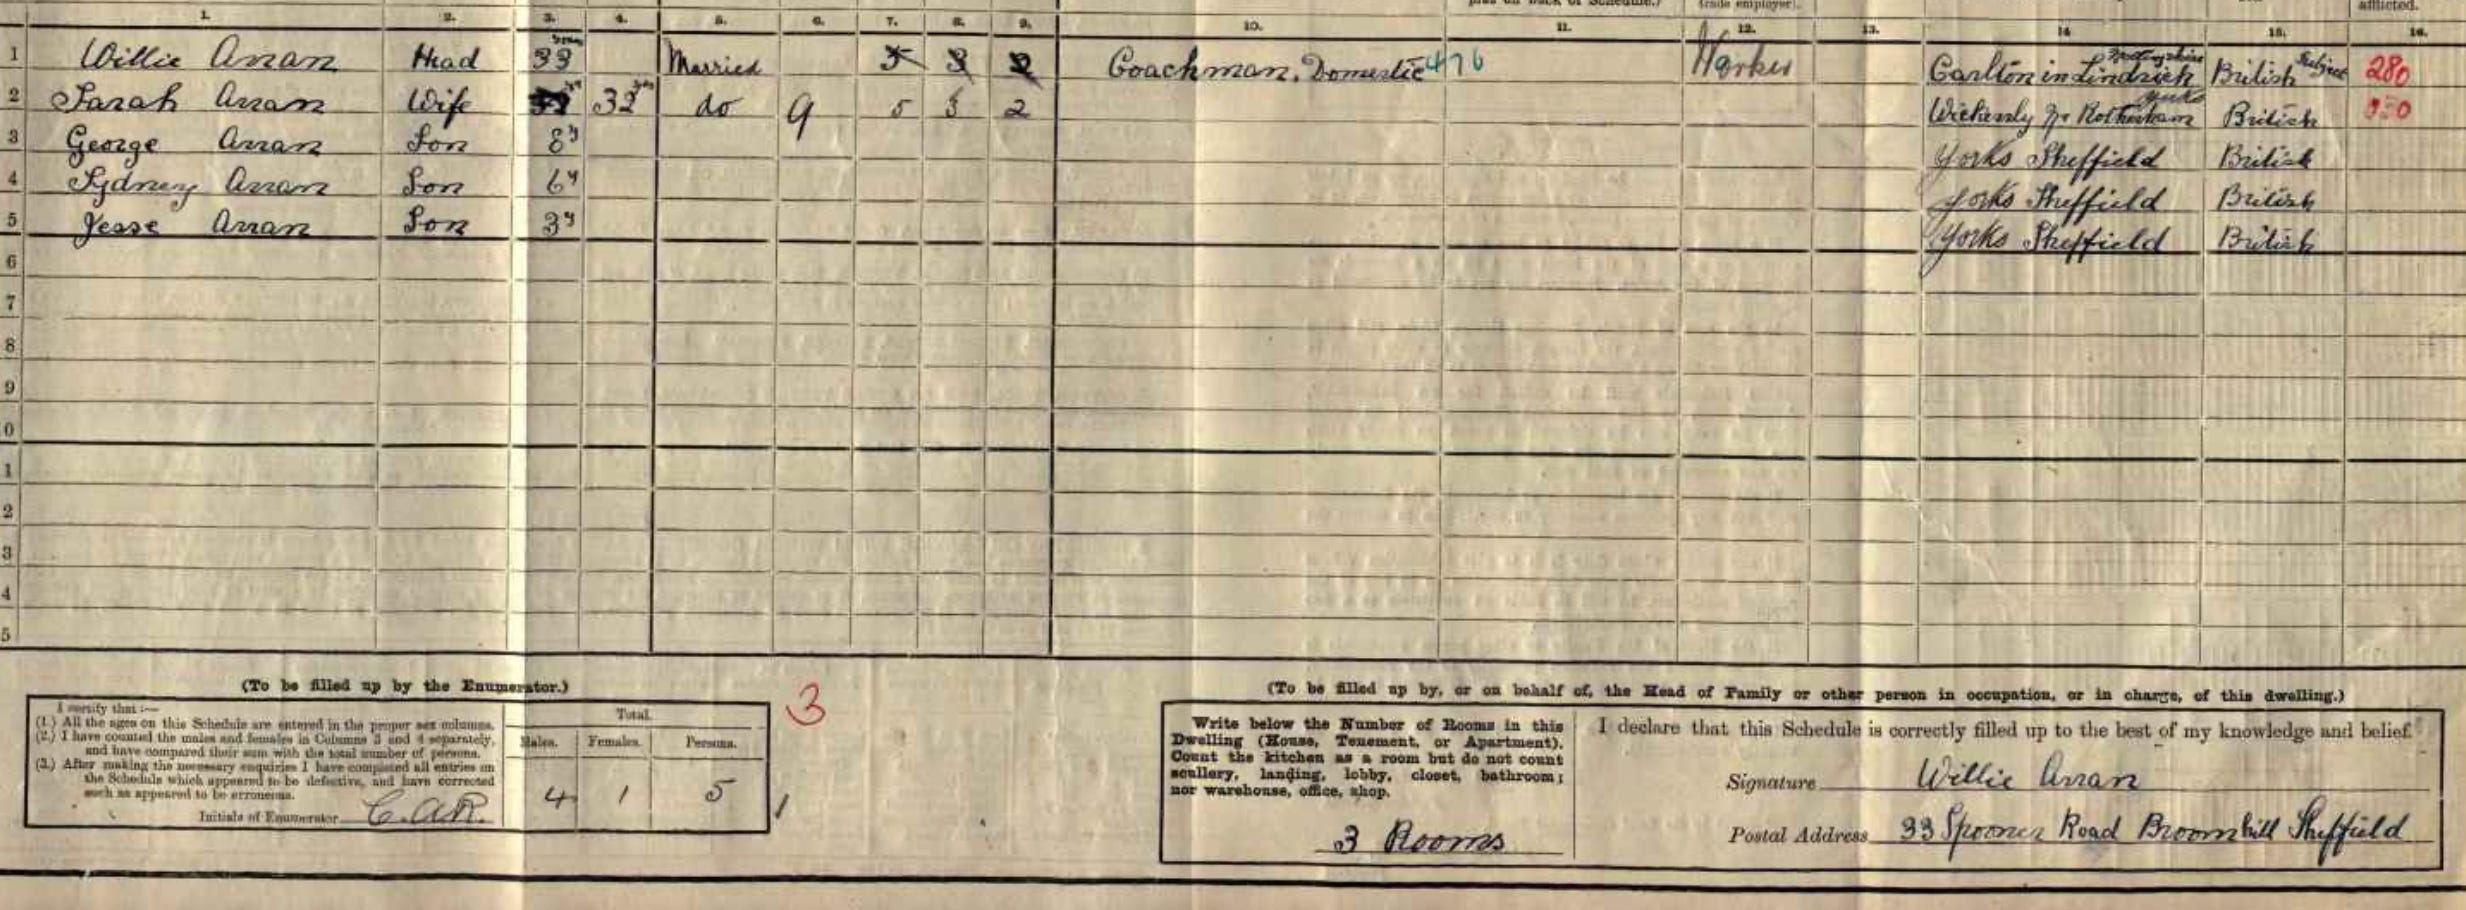 plies on back of Schedule.) trade employer). afflicted.
1. 2. 3. 4. 5. 6. 7. 8. 9. 10. 11. 12. 13. 14 15. 16.
1 Willie Arran Head 33 Married 5 3 2 Coachman, Domestic 476 Worker Carlton in Lindrick Nottinghamshire British Subject 280
2 Sarah Arran Wife 32 do 9 5 3 2 Wickersly Nr Rotherham Yorks British
3 George Arran Son 8y Yorks Sheffield British
4 Sydney Arran Son 6y Yorks Sheffield British
5 Jesse Arran Son 3y Yorks Sheffield British
6
7
8
9
0
1
2
3
4
5
(To be filled up by the Enumerator.)
I certify that :—
(1.) All the ages on this Schedule are entered in the proper sex columns.
(2.) I have counted the males and females in Columns 3 and 4 separately,
and have compared their sum with the total number of persons.
(3.) After making the necessary enquiries I have completed all entries on
the Schedule which appeared to be defective, and have corrected
such as appeared to be erroneous.
Initials of Enumerator C.A.R.
Total.
Males. Females. Persons.
4 1 5
3
1
(To be filled up by, or on behalf of, the Head of Family or other person in occupation, or in charge, of this dwelling.)
Write below the Number of Rooms in this
Dwelling (House, Tenement, or Apartment).
Count the kitchen as a room but do not count
scullery, landing, lobby, closet, bathroom;
nor warehouse, office, shop.
3 Rooms
I declare that this Schedule is correctly filled up to the best of my knowledge and belief.
Signature Willie Arran
Postal Address 33 Spooner Road Broomhill Sheffield